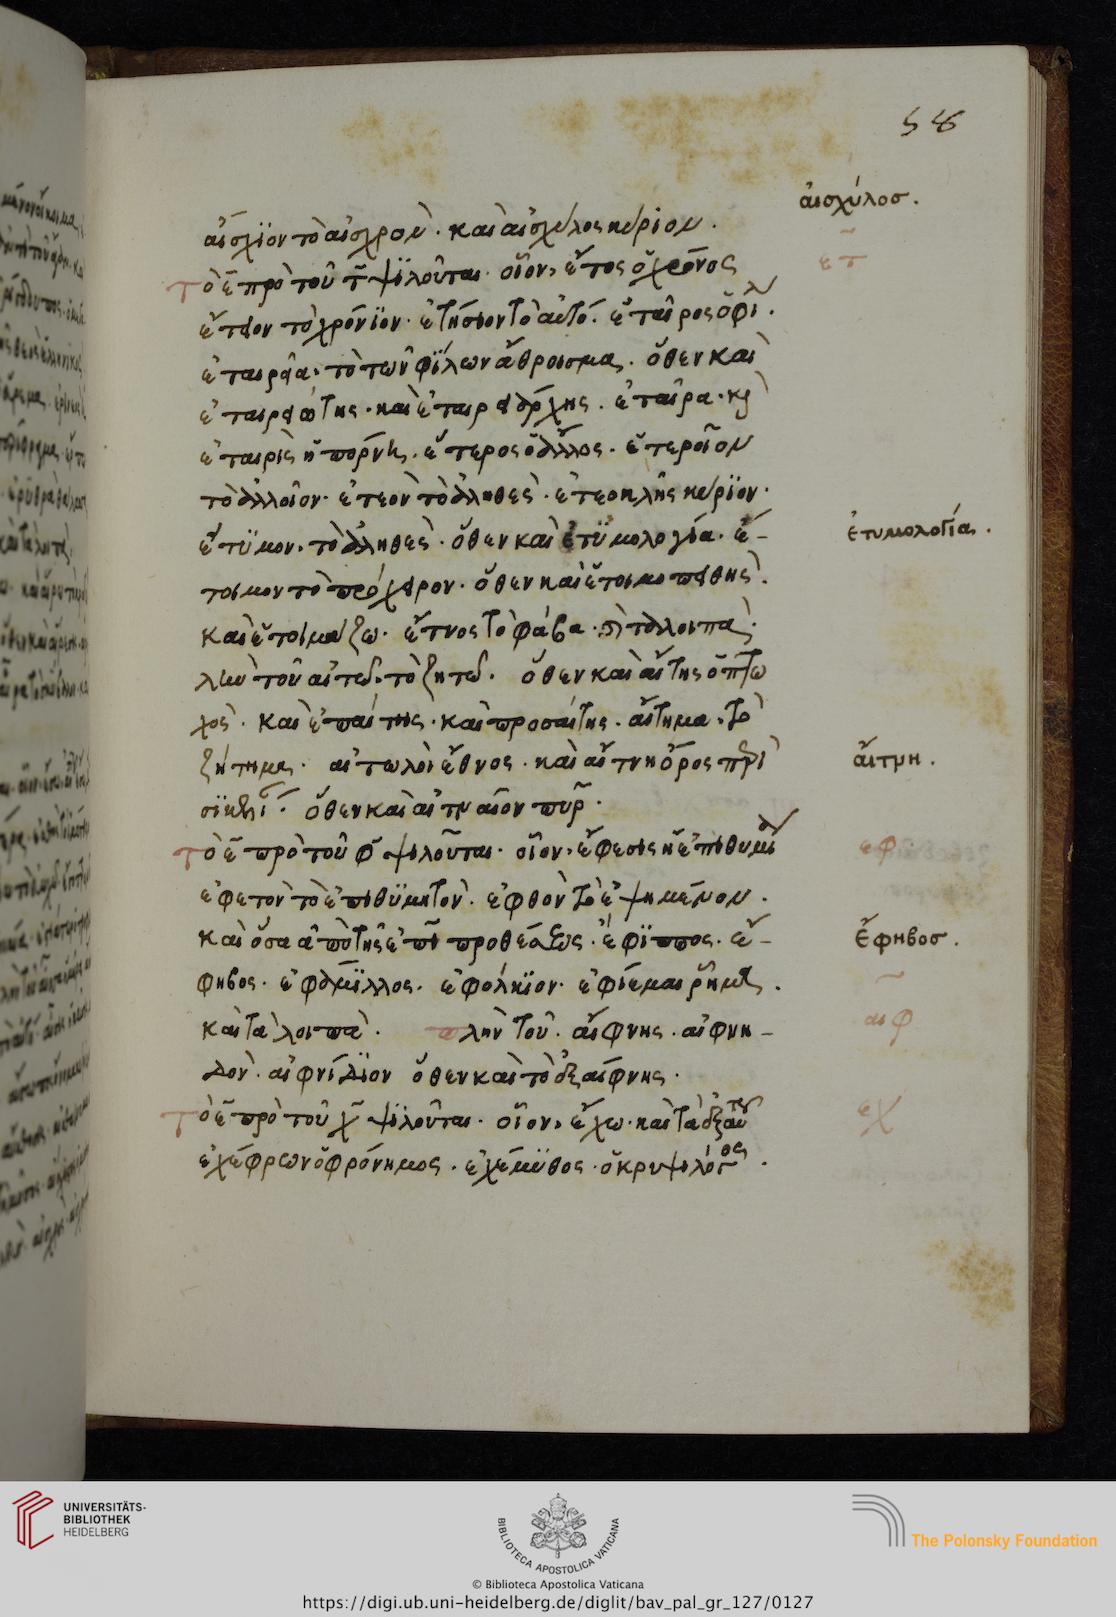 58
αἰσχύλοσ.
αἴσχϊον τὸ αἰσχρὸν. καὶ αἰσχύλος κύριον.
τὸ ε̄ πρὸ τοῦ τ̄ ψϊλοῦται. οἷον, ἔτος ὁ χρόνος
ετ
ἔτειον τὸ χρόνϊον. ἐτήσιον τὸ αὐτό. ἑταῖρος ὁ φί.
ἑταιρεία, τὸ τῶν φΐλων ἄθροισμα. ὅθεν καὶ
ἑταιρειώτης. καὶ ἑταιρειάρχης. ἑταίρα. κ
ἑταιρὶς ἡ πόρνη. ἕτερος ὁ ἄλλος. ἑτεροῖον
τὸ ἀλλοῖον. ἐτεὸν τὸ ἀληθὲς. ἐτεοκλῆς κύρϊον.
ἔτϋμον, τὸ ἀληθὲς. ὅθεν καὶ ἐτϋμολογία. ἕ-
ἐτυμολογία.
τοιμον τὸ πρόχειρον. ὅθεν καὶ ἑτοιμοπειθὴς.
καὶ ἑτοιμάζω. ἔτνος τὸ φάβα. τὰ λοιπὰ.
πλὴν τοῦ αἰτῶ, τὸ ζητῶ. ὅθεν καὶ αἴτης ὁ πτω
χὸς. καὶ ἐπαίτης. καὶ προσαίτης. αἴτημα, τὸ
ζήτημα. αἰτωλοὶ ἔθνος. καὶ αἴτνη ὄρος περὶ
αἴτμη.
σϊκελί. ὅθεν καὶ αἰτναῖον πῦρ.
τὸ ε̄ πρὸ τοῦ φ̄ ψιλοῦται. οἷον, ἔφεσις ἡ ἐπιθυμία
εφ
ἐφετὸν τὸ ἐπιθϋμητὸν. ἑφθὸν τὸ ἑψημένον.
καὶ ὅσα ἀπὸ τῆς ἐπὶ προθέσεως. ἔφϊππος. ἔ-
ἔφηβοσ.
φηβος. ἐφάμϊλλος. ἐφόλκϊον. ἐφίεμαι ῥῆμα.
καὶ τὰ λοιπὰ. πλὴν τοῦ. αἴφνης. αἰφνη-
αιφ
δὸν. αἰφνίδϊον ὅθεν καὶ τὸ ἐξαίφνης.
τὸ ε̄ πρὸ τοῦ χ̄ ψϊλοῦται. οἷον, ἔχω. καὶ τὰ ἐξ αὐτοῦ
εχ
ἐχέφρων ὁ φρόνημος. ἐχέμϋθος. ὁ κρυψολόγος.
UNIVERSITÄTS-
BIBLIOTHEK
HEIDELBERG
BIBLIOTECA APOSTOLICA VATICANA
The Polonsky Foundation
© Biblioteca Apostolica Vaticana
https://digi.ub.uni-heidelberg.de/diglit/bav_pal_gr_127/0127